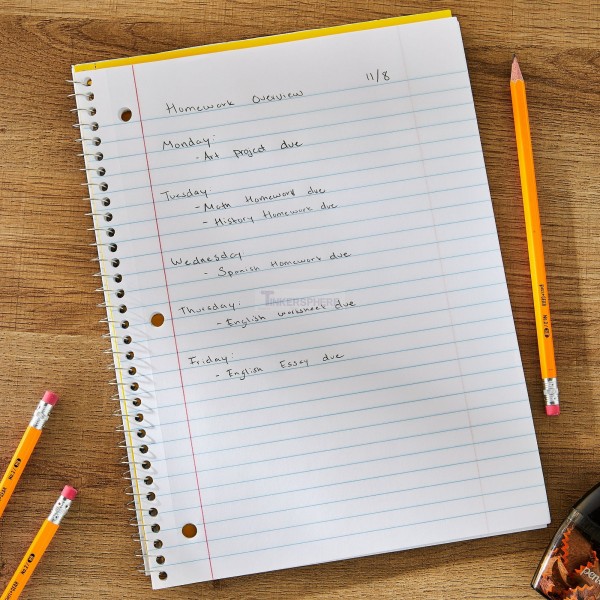 11/8
Homework Overview
Monday:
- Art project due
Tuesday:
- Math Homework due
- History Homework due
Wednesday
- Spanish Homework due
TINKERSPHERE
Thursday:
- English worksheet due
Friday:
- English Essay due